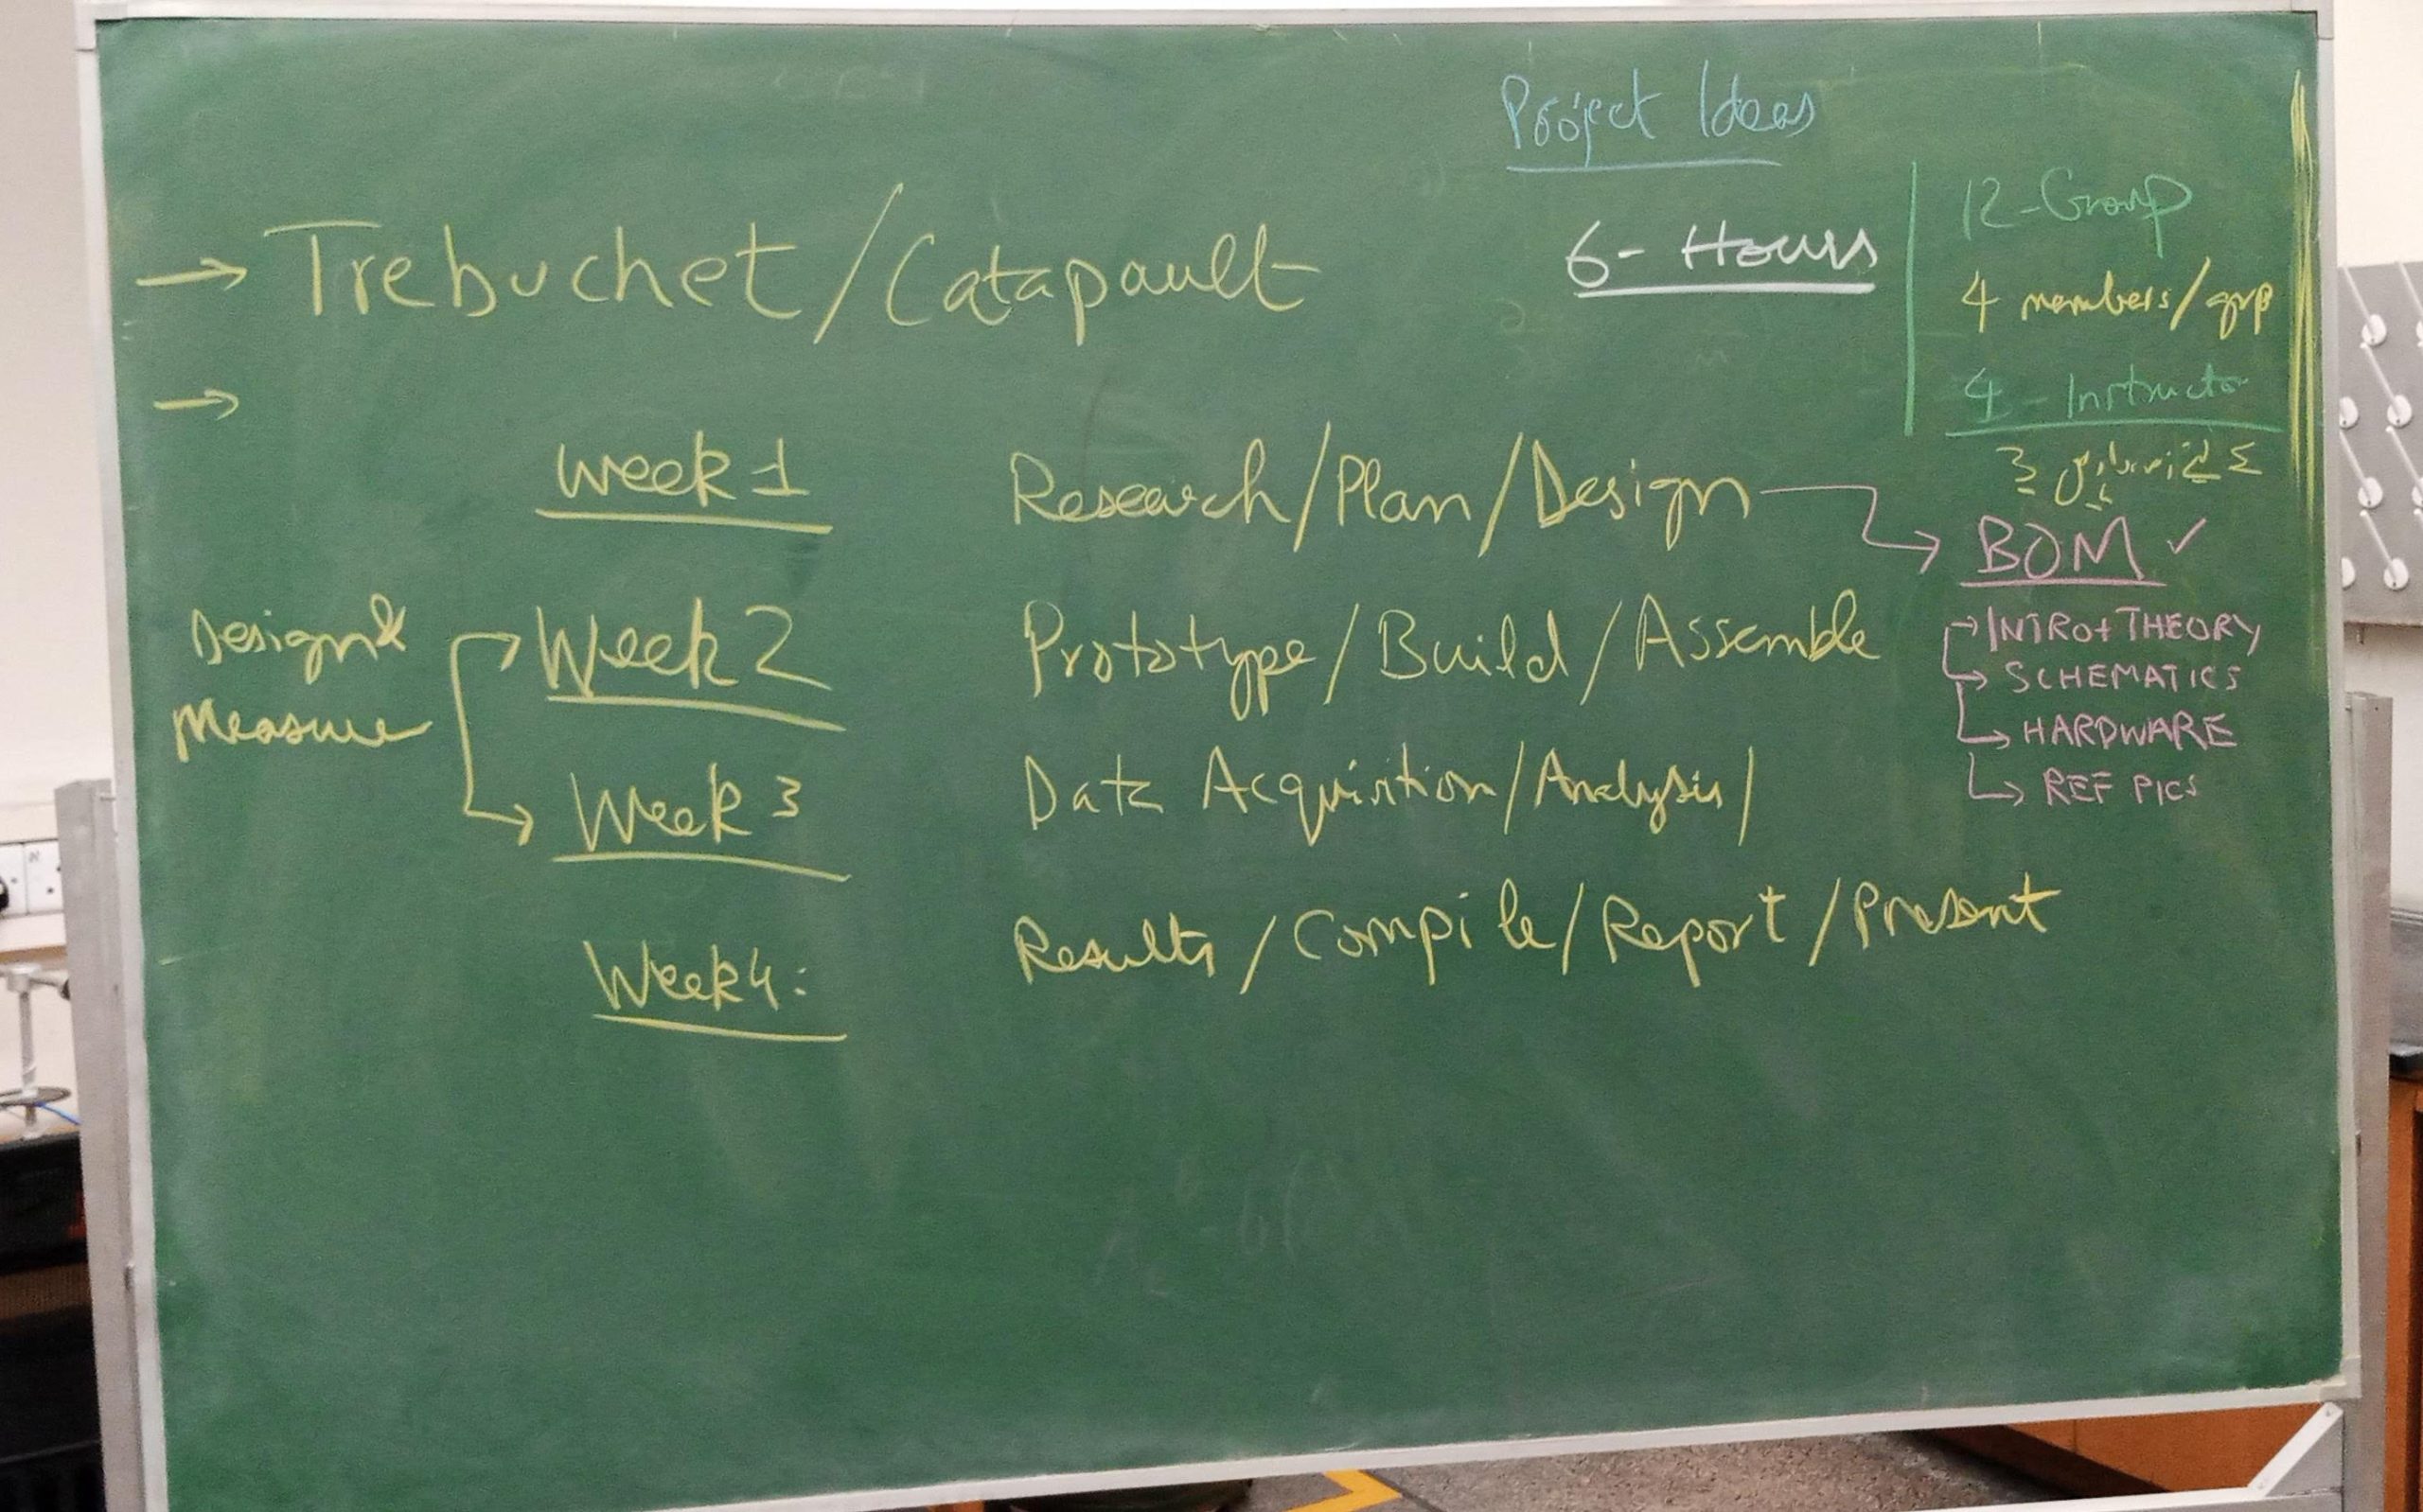 Project Ideas
→ Trebuchet/Catapault
6- Hours
12-Group
4 members/grp
4 - Instructor
→
week 1 Research/Plan/Design → BOM ✓
→ INTRO+THEORY
→ SCHEMATICS
→ HARDWARE
→ REF PICS
Design &
Measure
Week 2 Prototype/Build/Assemble
Week 3 Data Acquisition/Analysis/
Week 4: Results/Compile/Report/Present